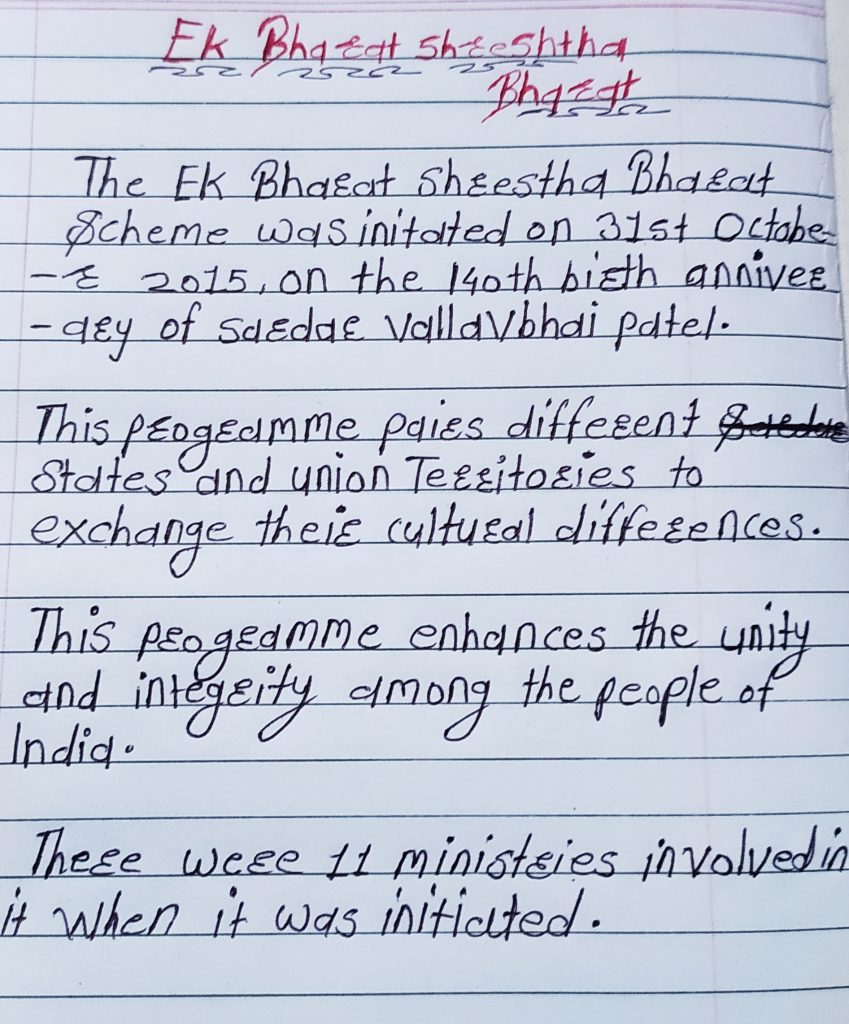 Ek Bharat Shreshtha
Bharat
The Ek Bharat Shreestha Bharat
Scheme was initated on 31st Octobe-
-r 2015, on the 140th birth anniver
-ary of Sardar Vallavbhai patel.
This programme pairs different
States and union Territories to
exchange their cultural differences.
This programme enhances the unity
and integrity among the people of
India.
There were 11 ministries involved in
it when it was initiated.